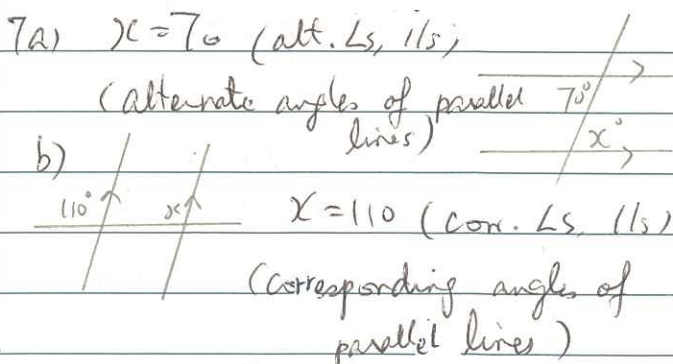 7a) x = 70 (alt. ∠s, //s)
(alternate angles of parallel lines)
70°
x°
b)
110°
x
x = 110 (corr. ∠s, //s)
(corresponding angles of
parallel lines)